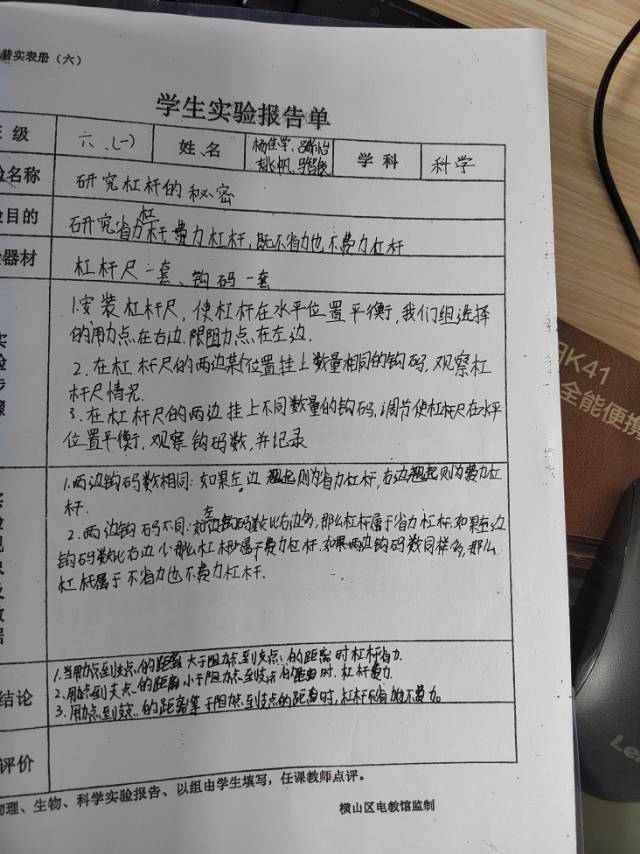 普实表册（六）
学生实验报告单
级 六、(一) 姓名 杨佳学、 学科 科学
名称 研究杠杆的秘密
目的 研究省力杠杆、费力杠杆，既不省力也不费力杠杆
器材 杠杆尺一套、钩码一套
实验步骤
1.安装杠杆尺，使杠杆在水平位置平衡，我们组选择
的用力点在右边.限阻力点在左边.
2.在杠杆尺的两边某个位置挂上数量相同的钩码,观察杠
杆尺情况.
3.在杠杆尺的两边挂上不同数量的钩码,调节使杠杆尺在水平
位置平衡,观察钩码数,并记录
1.两边钩码数相同:如果左边翘起则为省力杠杆,右边翘起则为费力杠
杆.
2.两边钩码不同:如左边钩码数比右边多,那么杠杆属于省力杠杆.如果左边
钩码数比右边小那么杠杆属于费力杠杆.如果两边钩码数同样多,那么
杠杆属于不省力也不费力杠杆.
结论
1.当用力点到支点的距离大于阻力点到支点的距离时杠杆省力.
2.用力点到支点的距离小于阻力点到支点的距离时.杠杆费力.
3.用力点到支点的距离等于阻力点到支点的距离时,杠杆不省力不费力。
评价
物理、生物、科学实验报告、以组由学生填写，任课教师点评。
横山区电教馆监制
K41
全能便携
Le